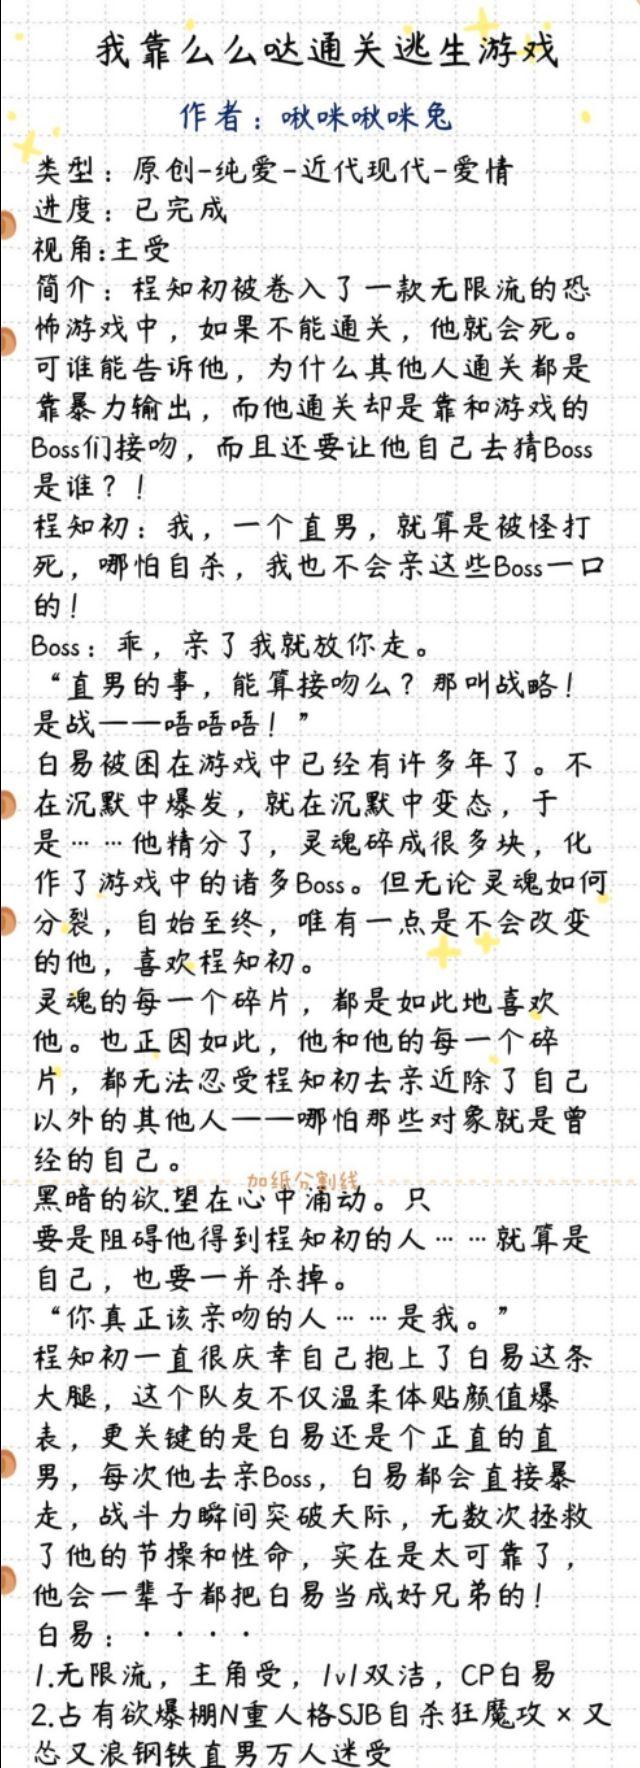 我靠么么哒通关逃生游戏
作者：啾咪啾咪兔
类型：原创-纯爱-近代现代-爱情
进度：已完成
视角:主受
简介：程知初被卷入了一款无限流的恐
怖游戏中，如果不能通关，他就会死。
可谁能告诉他，为什么其他人通关都是
靠暴力输出，而他通关却是靠和游戏的
Boss们接吻，而且还要让他自己去猜Boss
是谁？！
程知初：我，一个直男，就算是被怪打
死，哪怕自杀，我也不会亲这些Boss一口
的！
Boss：乖，亲了我就放你走。
“直男的事，能算接吻么？那叫战略！
是战——唔唔唔！”
白易被困在游戏中已经有许多年了。不
在沉默中爆发，就在沉默中变态，于
是……他精分了，灵魂碎成很多块，化
作了游戏中的诸多Boss。但无论灵魂如何
分裂，自始至终，唯有一点是不会改变
的他，喜欢程知初。
灵魂的每一个碎片，都是如此地喜欢
他。也正因如此，他和他的每一个碎
片，都无法忍受程知初去亲近除了自己
以外的其他人——哪怕那些对象就是曾
经的自己。
加纸分割线
黑暗的欲.望在心中涌动。只
要是阻碍他得到程知初的人……就算是
自己，也要一并杀掉。
“你真正该亲吻的人……是我。”
程知初一直很庆幸自己抱上了白易这条
大腿，这个队友不仅温柔体贴颜值爆
表，更关键的是白易还是个正直的直
男，每次他去亲Boss，白易都会直接暴
走，战斗力瞬间突破天际，无数次拯救
了他的节操和性命，实在是太可靠了，
他会一辈子都把白易当成好兄弟的！
白易：····
1.无限流，主角受，1v1双洁，CP白易
2.占有欲爆棚N重人格SJB自杀狂魔攻×又
怂又浪钢铁直男万人迷受